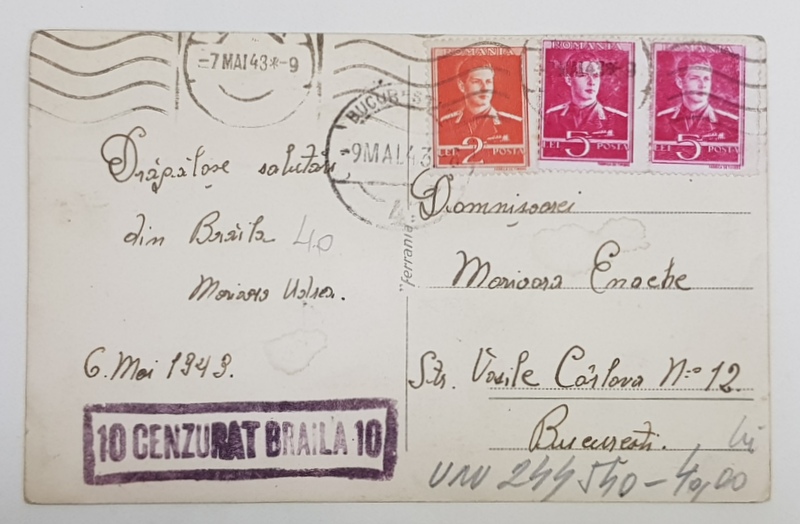 -7 MAI 43 * -9
ROMANIA
2
LEI POSTA
ROMANIA
5
LEI POSTA
ROMANIA
5
LEI POSTA
BUCUREST
-9 MAI. 43
4
salutări
din Brăila
40
Marioara
6. Mai 1943.
10 CENZURAT BRAILA 10
"ferrania"
Domnișoarei
Marioara Enache
Str. Vasile Cârlova No 12
București.
244 540 - 40,00